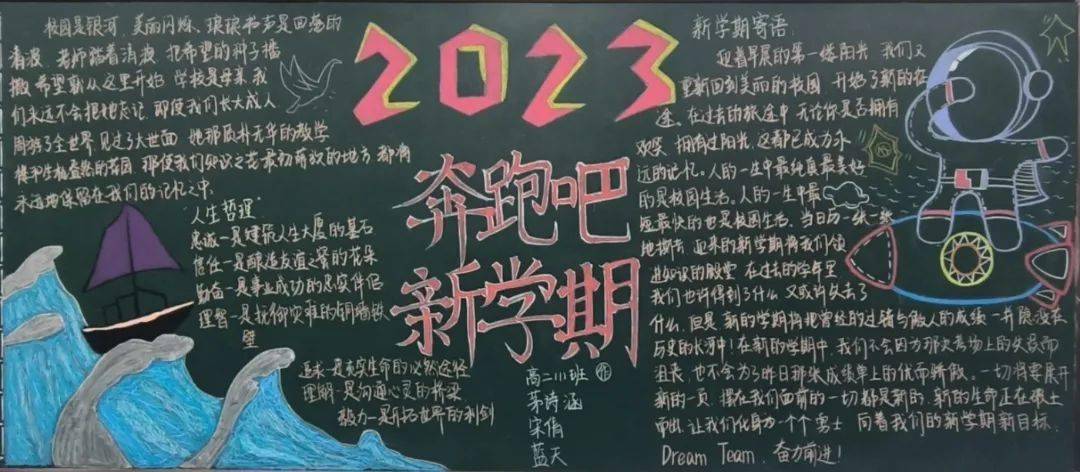 校园是银河，美丽闪烁、琅琅书声是回荡的
春波 老师踏着清波 把希望的种子播
撒 希望就从这里开始 学校是母亲 我
们永远不会把她忘记 即使我们长大成人
周游了全世界 见过了大世面 她那质朴无华的教学
楼和生机盎然的花园 那使我们知识之花最初萌放的地方 都将
永远地保留在我们的记忆之中.
人生哲理
忠诚一是建筑人生大厦的基石
信任一是酿造友谊之蜜的花朵
勤奋一是事业成功的忠实伴侣
理智一是抵御灾难的铜墙铁
壁
追求一是充实生命的必然途径
理解一是沟通心灵的桥梁
毅力一是开拓世界的利剑
2023
奔跑吧
新学期
高二11班 作
茅诗涵
宋倩
蓝天
新学期寄语:
迎着早晨的第一缕阳光 我们又
重新回到美丽的校园 开始了新的征
途。在过去的旅途中 无论你是否拥有
欢笑 拥有过阳光 这都已成为永
远的记忆。人的一生中最纯真最美好
的是校园生活。人的一生中最
短最快的也是校园生活。当日历一张一张
地撕去 迎来的新学期将我们领
进知识的殿堂 在过去的学年里
我们也许得到了什么 又或许失去了
什么. 但是 新的学期将把曾经的过错与傲人的成绩 一并隐没在
历史的长河中！在新的学期中，我们不会因为那次考场上的失意而
沮丧，也不会为了昨日那张成绩单上的优而骄傲。一切将要展开
新的一页 摆在我们面前的一切都是新的 新的生命正在破土
而出 让我们化身为一个个勇士 向着我们的新学期新目标、
Dream Team、奋力前进！